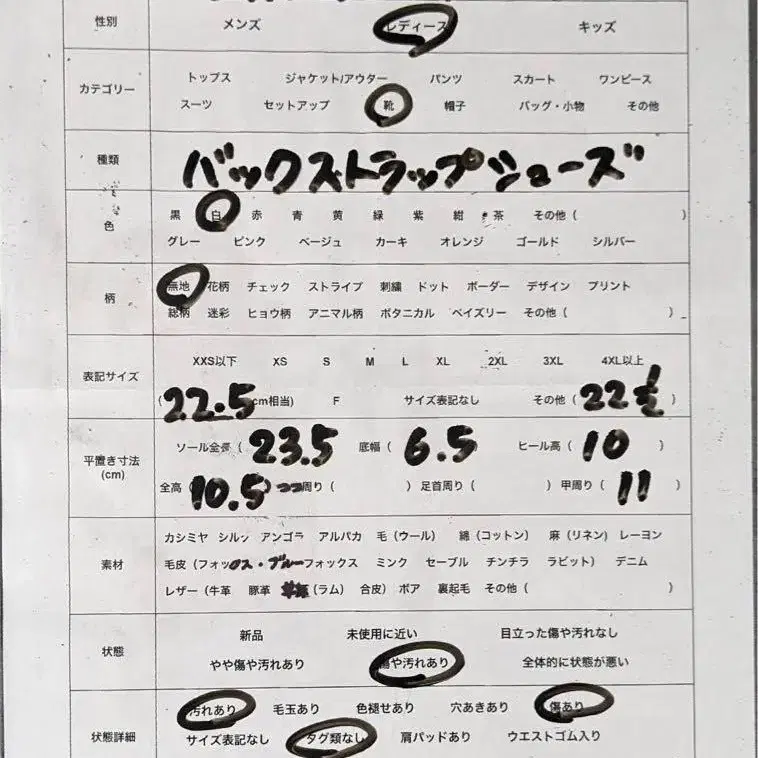 性別 メンズ レディース キッズ
カテゴリー
トップス ジャケット/アウター パンツ スカート ワンピース
スーツ セットアップ 靴 帽子 バッグ・小物 その他
種類 バックストラップシューズ
色
黒 白 赤 青 黄 緑 紫 紺 茶 その他( )
グレー ピンク ベージュ カーキ オレンジ ゴールド シルバー
柄
無地 花柄 チェック ストライプ 刺繍 ドット ボーダー デザイン プリント
総柄 迷彩 ヒョウ柄 アニマル柄 ボタニカル ペイズリー その他( )
表記サイズ
XXS以下 XS S M L XL 2XL 3XL 4XL以上
(22.5cm相当) F サイズ表記なし その他(22½)
平置き寸法
(cm)
ソール全長(23.5 底幅(6.5 ヒール高(10)
全高(10.5) 周り( )足首周り( )甲周り(11)
素材
カシミヤ シルク アンゴラ アルパカ 毛(ウール) 綿(コットン) 麻(リネン) レーヨン
毛皮(フォックス・ブルーフォックス ミンク セーブル チンチラ ラビット) デニム
レザー(牛革 豚革 (ラム) 合皮)ボア 裏起毛 その他( )
状態
新品 未使用に近い 目立った傷や汚れなし
やや傷や汚れあり 傷や汚れあり 全体的に状態が悪い
状態詳細
汚れあり 毛玉あり 色褪せあり 穴あきあり 傷あり
サイズ表記なし タグ類なし 肩パッドあり ウエストゴム入り